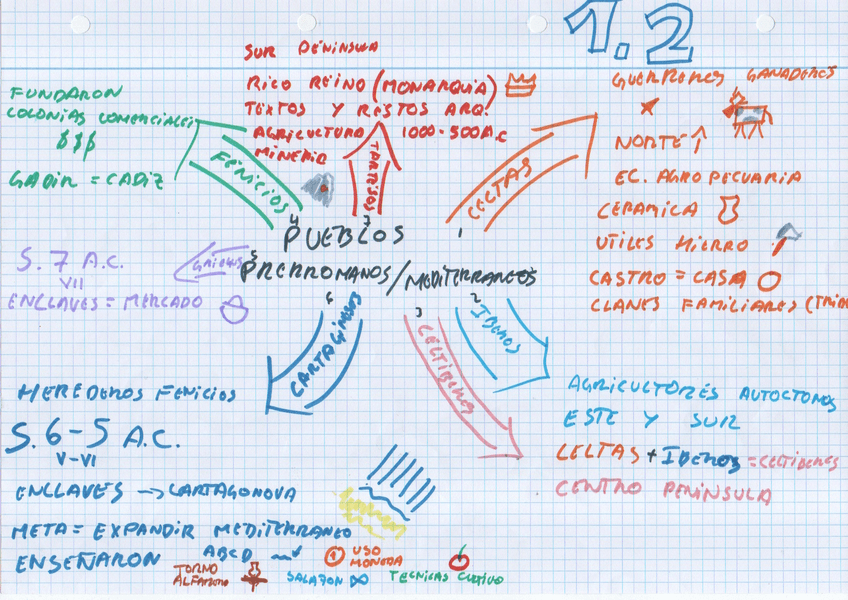 1.2
SUR PENINSULA
RICO REINO (MONARQUIA)
TEXTOS Y RESTOS ARQ.
AGRICULTURA 1000-500 A.C
MINERIA
TARTESOS
FUNDARON
COLONIAS COMERCIALES
$$$
GADIR = CADIZ
FENICIOS
GUERREROS GANADEROS
NORTE ↑
EC. AGROPECUARIA
CERAMICA
UTILES HIERRO
CASTRO = CASA
CLANES FAMILIARES
CELTAS
4 7 1
PUEBLOS
5 PRERROMANOS/MEDITERRANEOS
6 3 2
GRIEGOS
S. 7 A.C.
VII
ENCLAVES = MERCADO
CARTAGINESES
CELTIBEROS
IBEROS
HEREDEROS FENICIOS
S. 6-5 A.C.
V-VI
ENCLAVES -> CARTAGONOVA
META = EXPANDIR MEDITERRANEO
ENSEÑARON ABCD
1 USO
MONEDA
TORNO
ALFARERO
SALAZON
TECNICAS CULTIVO
AGRICULTORES AUTOCTONOS
ESTE Y SUR
CELTAS + IBEROS = CELTIBEROS
CENTRO PENINSULA